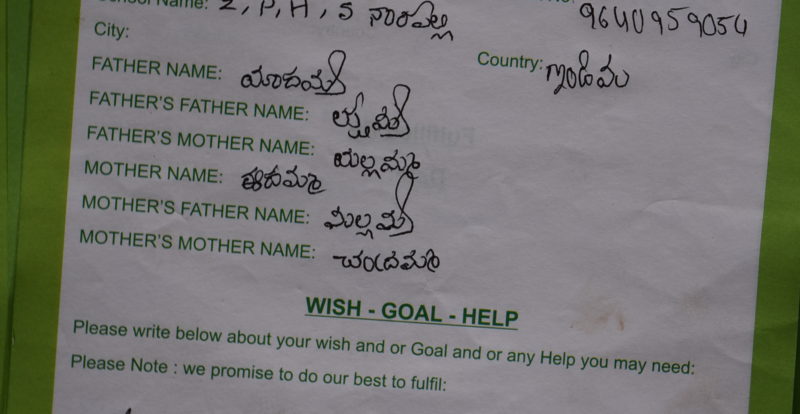 School Name: Z, P, H, S నారపల్లి
9640959054
City:
Country: ఇండియ
FATHER NAME: యాదయ్య
FATHER'S FATHER NAME:
FATHER'S MOTHER NAME: యల్లమ్మ
MOTHER NAME: ఈరమ్మ
MOTHER'S FATHER NAME: మల్లయ్య
MOTHER'S MOTHER NAME: చంద్రమ్మ
WISH - GOAL - HELP
Please write below about your wish and or Goal and or any Help you may need:
Please Note : we promise to do our best to fulfil: